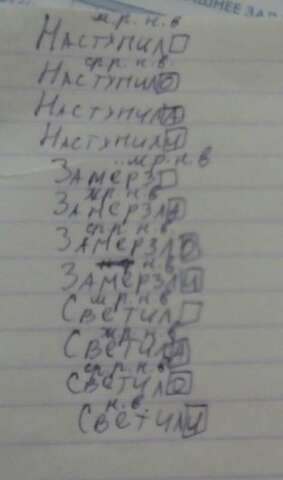 м.р. н.в
Наступил
ср.р. н.в.
Наступило
Наступила
Наступили
м.р. н.в
Замёрз
н.в
Замерзла
ср.р. н.в
Замерзло
н.в
Замерзли
м.р. н.в
Светил
н.в
Светила
ср.р. н.в
Светило
н.в.
Светили